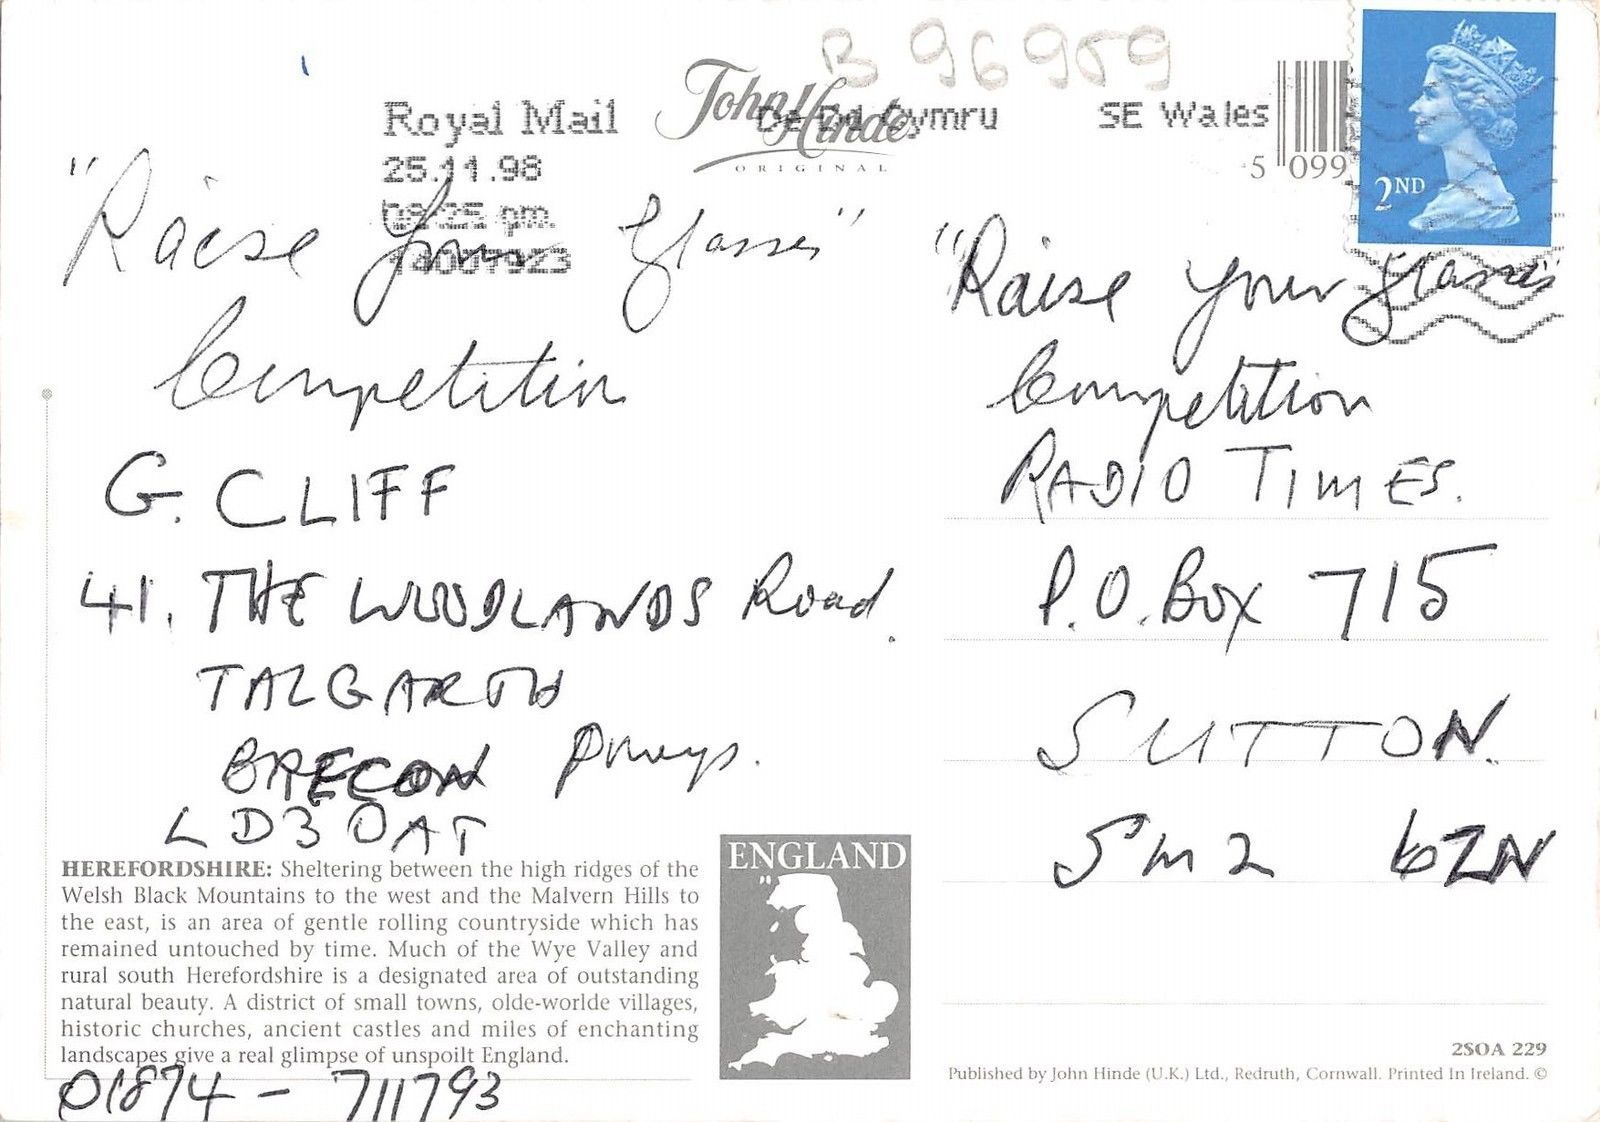 B 96959
John Hinde
ORIGINAL
Royal Mail
SE Wales
25.11.98
08:25 pm
5 099
2ND
"Raise your glasses"
Competition
G. CLIFF
41. THE WOODLANDS Road.
TALGARTH
BRECON Powys.
LD3 0AT
HEREFORDSHIRE: Sheltering between the high ridges of the
Welsh Black Mountains to the west and the Malvern Hills to
the east, is an area of gentle rolling countryside which has
remained untouched by time. Much of the Wye Valley and
rural south Herefordshire is a designated area of outstanding
natural beauty. A district of small towns, olde-worlde villages,
historic churches, ancient castles and miles of enchanting
landscapes give a real glimpse of unspoilt England.
01874 - 711793
ENGLAND
"Raise your glasses"
Competition
RADIO TIMES.
P.O. Box 715
SUTTON.
SM2 6ZN
2SOA 229
Published by John Hinde (U.K.) Ltd., Redruth, Cornwall. Printed In Ireland. ©